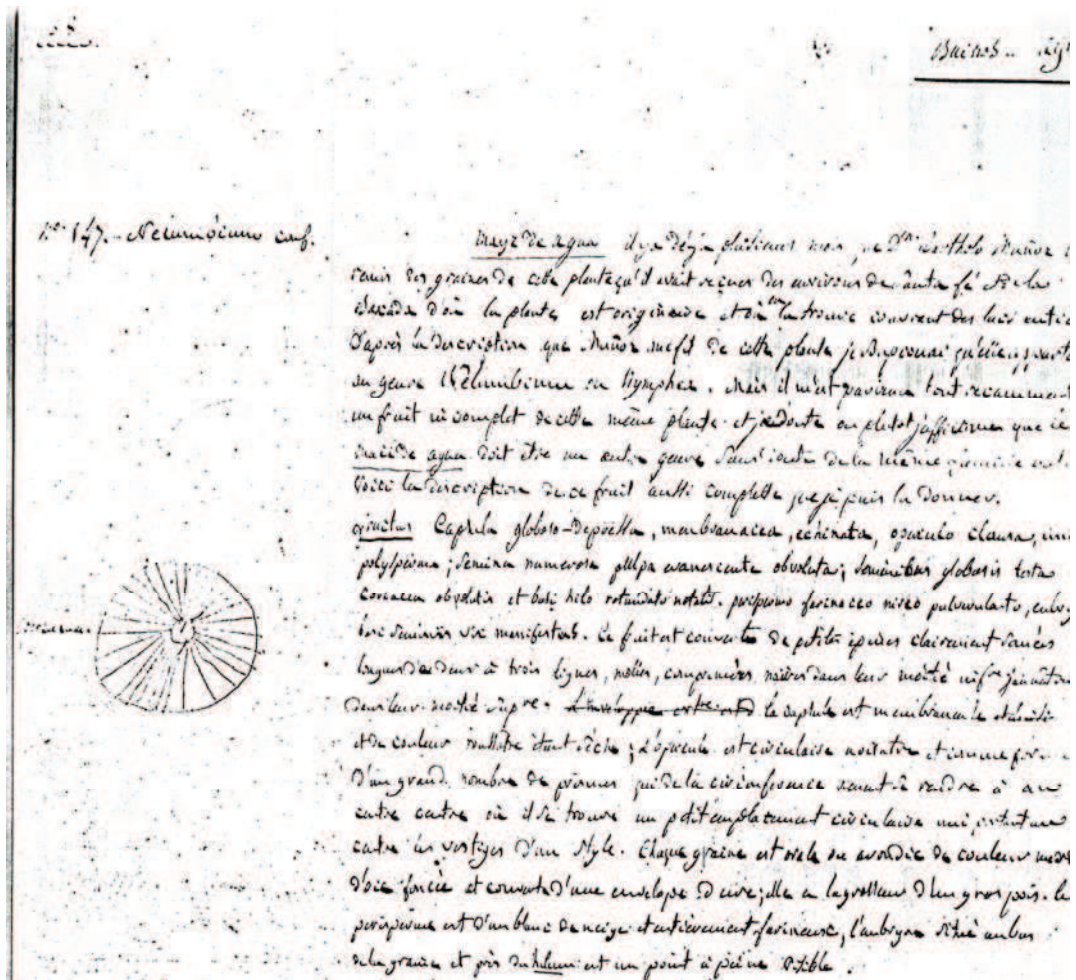 58.
Buenos - 
n.° 147. - Nelumbium conf.
mayz de agua il y a déjà plusieurs mois, que Dn Bartholo Muñoz
remis des graines de cette plante qu'il avait reçues des environs de Santa fé et de la
d'où la plante est originaire et où on la trouve couvrant des lacs entie
D'après la description que Muñoz me fit de cette plante je supçonai qu'elle apparte
au genre Nelumbium ou Nymphea. Mais il m'est parvenu tout recemment
un fruit incomplet de cette même plante et je doute ou plutot j'afficmer que ce
de agua doit être un autre genre sans doute de la même
Voici la description de ce fruit aussi complette que je puis la donner.
fructus Capsula globoso-depressa, membranacea, echinata, opercul clausa,
polysperma; semina numerosa pulpa evanescente obvoluta; seminibus globosis testa
coriacea obvolutis et basi hilo rotundato notatis. perispermo farinaceo niveo pulverulento,
basi seminis vix manifestus. Ce fruit est couverte de petites épines clairement
longues de deux à trois lignes, molles, comprimées, noires dans leur moitié infre jaunâtre
dans leur moitié supre. L'enveloppe extre est la capsule est membraneuse
et de couleur roussâtre étant sèche; L'opercule est circulaire noirâtre et comme for
d'un grand nombre de qui de la circonference vont se rendre à un
centre où il se trouve un petit emplacement circulaire uni portant au
centre les vestiges d'un style. Chaque graine est ovale ou arrondie de couleur
d'oie foncée et couverte d'une envelope dure; elle a la grosseur d'un gros pois. le
perisperme est d'un blanc de neige et entierement farineux, l'embryon situé au bas
de la graine et près du hilum est un point à peine visible.